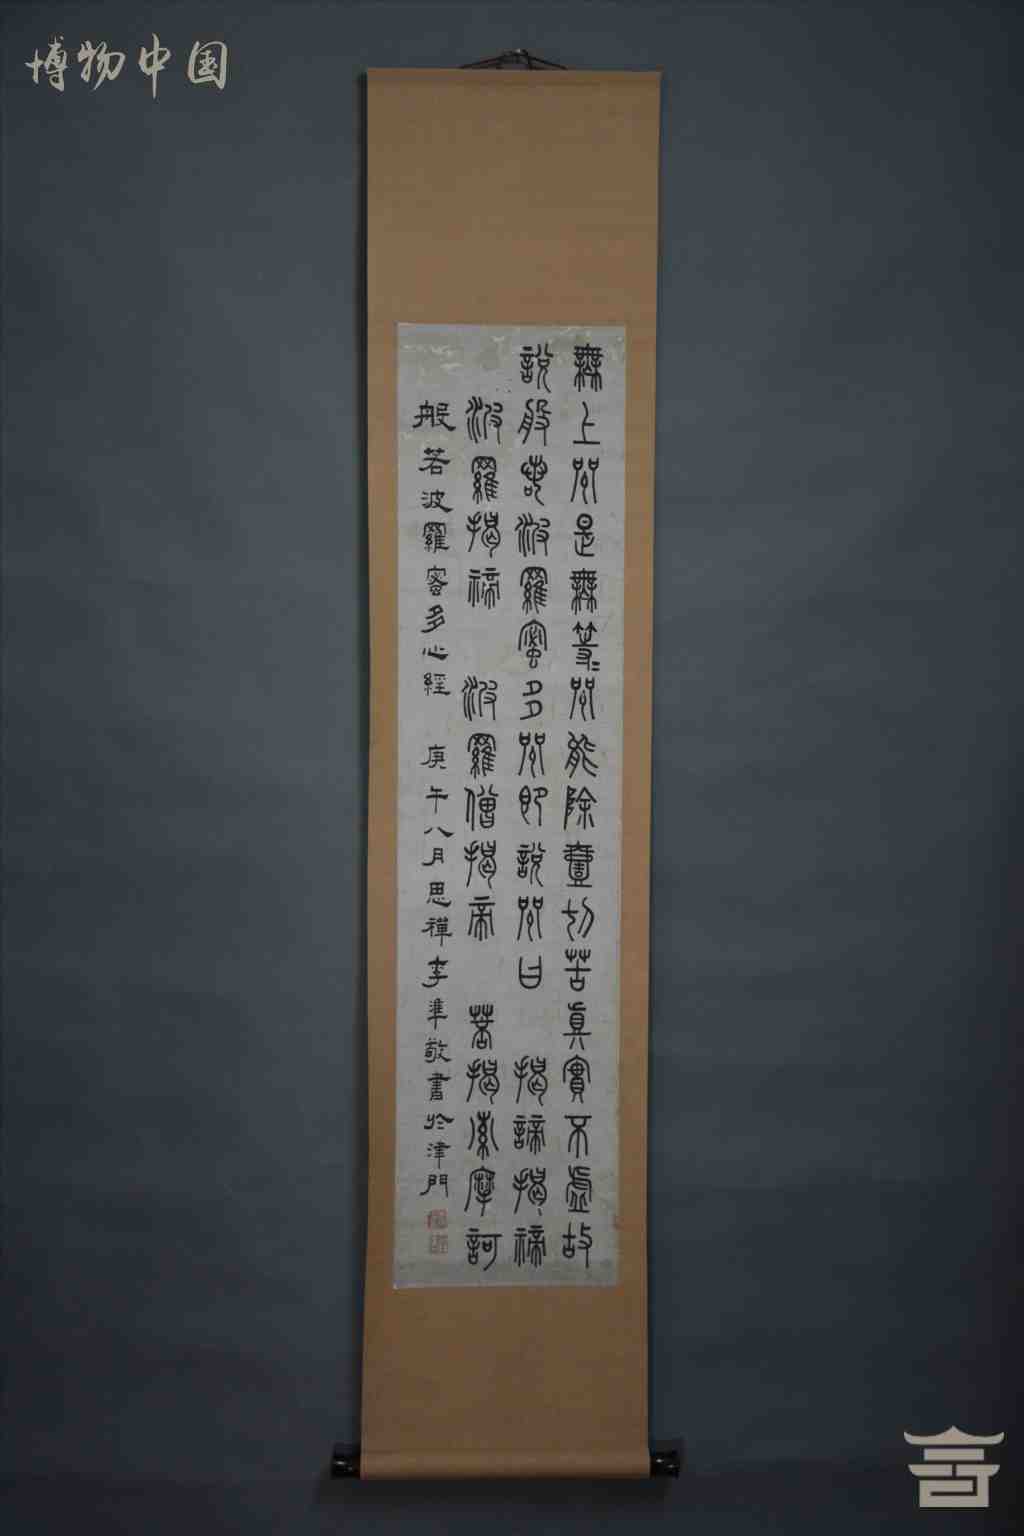 博物中国
無上咒是無等〻咒能除壹切苦真實不虛故
說般若波羅蜜多咒即說咒曰 揭諦揭禘
波羅揭禘 波羅僧揭帝 菩揭摩訶
般若波羅蜜多心經 庚午八月思禪李準敬書於津門